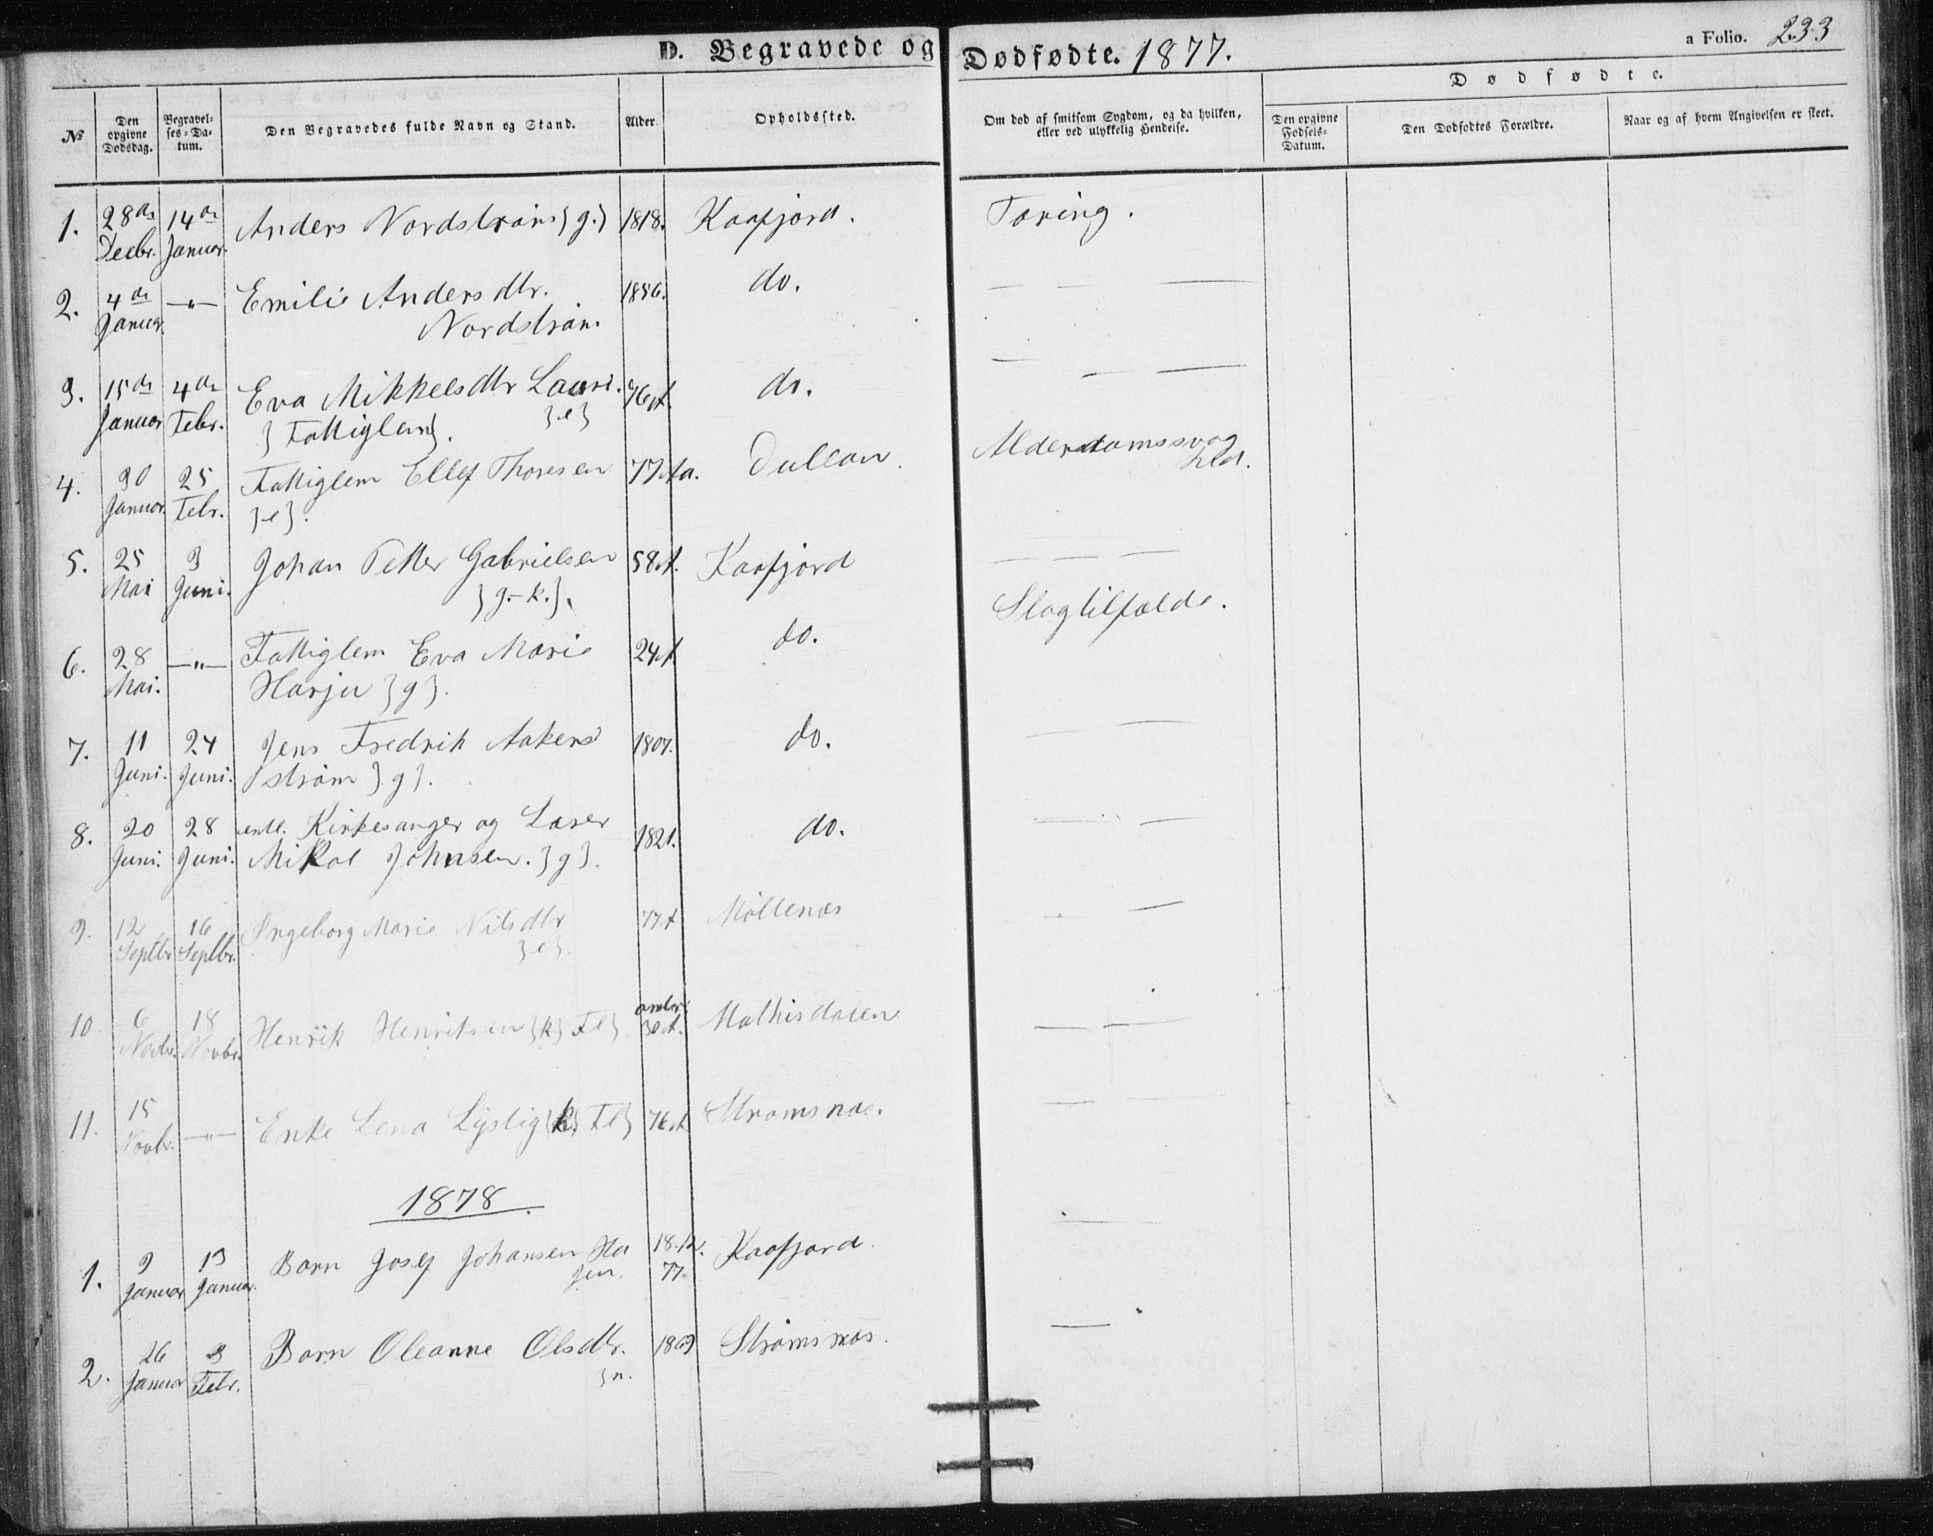 D. Begravede og Dødfødte. 1877.
a Folio. 233
No
Den opgivne Dødsdag.
Begravelses-Datum.
Den Begravedes fulde Navn og Stand.
Alder.
Opholdssted.
Om død af smitsom Sygdom, og da hvilken, eller ved ulykkelig Hendelse.
Dødfødte.
Den opgivne Fødsels-Datum.
Den Dødfødtes Forældre.
Naar og af hvem Angivelsen er skeet.
1. 28de Decbr. 14de Januar. Anders Nordstrøm }g.} 1818. Kaafjord. Tæring.
2. 4de Januar. —"— Emilie Anders dtr. 1856. do. — — —
Nordstrøm.
3. 15de Januar 4de Febr. Eva Mikkelsdtr Lauri. 76 A. do. — — —
}Fattiglem}. }e}
4. 30 Januar. 25 Febr. Fattiglem Ellef Thoresen 77 Aa. Alderdomssvaghed.
}e}.
5. 25 Mai 3 Juni. Johan Petter Gabrielsen 58 A. Kaafjord — —
}g.-k.}.
6. 28 Mai. —"— Fattiglem Eva Marie 24 A do. Slagtilfælde.
Harju }g}.
7. 11 Juni. 24 Juni. Jens Fredrik Aakerstrøm }g}. 1807. do. — —
8. 20 Juni. 28 Juni. Kirkesanger og Læser 1821. do. — —
Mikal Johnsen. }g}.
9. 12 Septbr 16 Septbr. Ingeborg Marie Nilsdtr 77 A Møllenæs — —
}e}.
10. 6 Novbr. 18 Novbr. Henrik Henriksen }k} Fl}. omtr. 30 A. Mathisdalen — —
11. 15 Novbr. —"— Enke Lena Lystig }k} Fl} 76 A Strømsnæs. — —
1878.
1. 9 Januar 13 Januar. Barn Josef Johansen Ha 18.12.77. Kaafjord. —
2. 26 Januar 3 Febr. Barn Oleanne Olsdtr. 1869 Strømsnæs. —
}n.